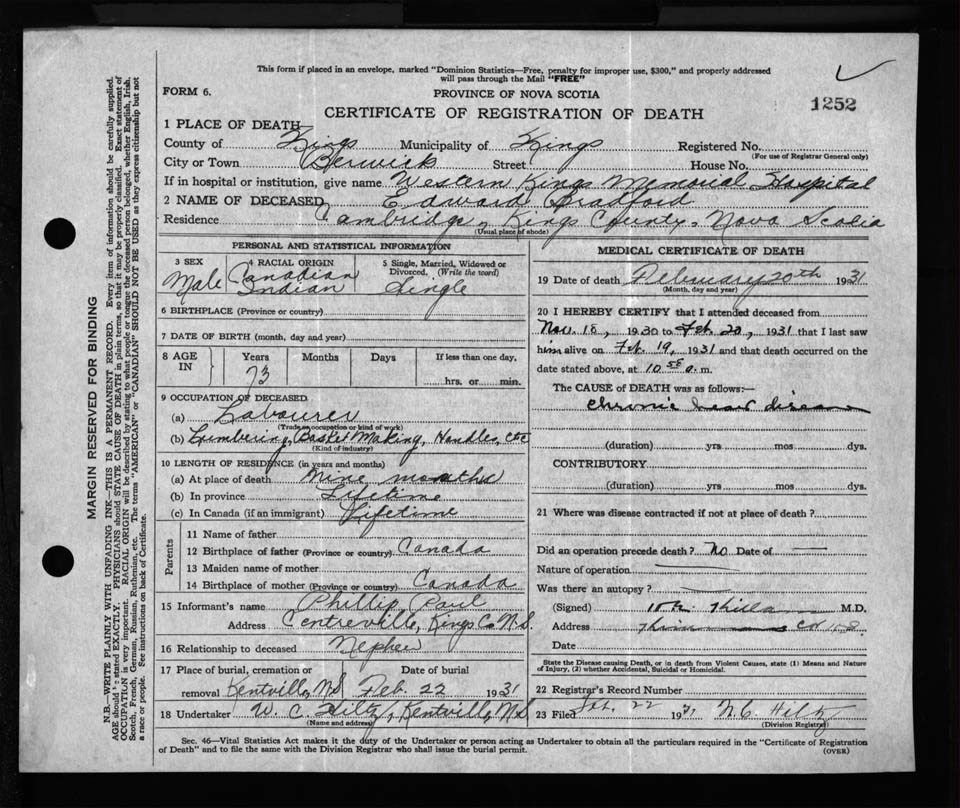 This form if placed in an envelope, marked "Dominion Statistics—Free, penalty for improper use, $300," and properly addressed
will pass through the Mail "FREE"
FORM 6.
PROVINCE OF NOVA SCOTIA
1252
CERTIFICATE OF REGISTRATION OF DEATH
1 PLACE OF DEATH
County of Kings Municipality of Kings Registered No.
(For use of Registrar General only)
City or Town Berwick Street House No.
If in hospital or institution, give name Western Kings Memorial Hospital
2 NAME OF DECEASED Edward Bradford
Residence Cambridge, Kings County, Nova Scotia
(Usual place of abode)
PERSONAL AND STATISTICAL INFORMATION
3 SEX
Male
4 RACIAL ORIGIN
Canadian
Indian
5 Single, Married, Widowed or
Divorced. (Write the word)
Single
6 BIRTHPLACE (Province or country)
7 DATE OF BIRTH (month, day and year)
8 AGE
IN
Years Months Days If less than one day,
73
hrs. or min.
9 OCCUPATION OF DECEASED
(a) Labourer
(Trade an occupation or kind of work)
(b) Lumbering, Basket Making, Handles, etc
(Kind of industry)
10 LENGTH OF RESIDENCE (in years and months)
(a) At place of death nine months
(b) In province Lifetime
(c) In Canada (if an immigrant) Lifetime
Parents
11 Name of father
12 Birthplace of father (Province or country) Canada
13 Maiden name of mother
14 Birthplace of mother (Province or country) Canada
15 Informant's name Phillip Paul
Address Centreville, Kings Co N.S.
16 Relationship to deceased Nephew
17 Place of burial, cremation or Date of burial
removal Kentville, N.S Feb. 22 1931
18 Undertaker W. C. Hiltz, Kentville, N.S
(Name and address)
MEDICAL CERTIFICATE OF DEATH
19 Date of death February 20th 1931
(Month, day and year)
20 I HEREBY CERTIFY that I attended deceased from
Nov. 18, 1930 to Feb. 20, 1931 that I last saw
him alive on Feb. 19, 1931 and that death occurred on the
date stated above, at 10 a. m.
The CAUSE of DEATH was as follows:—
Chronic heart disease
(duration) yrs mos dys.
CONTRIBUTORY
(duration) yrs mos dys.
21 Where was disease contracted if not at place of death?
Did an operation precede death? No Date of —
Nature of operation —
Was there an autopsy? —
(Signed) M.D.
Address
Date
State the Disease causing Death, or in death from Violent Causes, state (1) Means and Nature
of Injury, (2) whether Accidental, Suicidal or Homicidal.
22 Registrar's Record Number
23 Filed Feb. 22 1931 W. C. Hiltz
(Division Registrar)
Sec. 46—Vital Statistics Act makes it the duty of the Undertaker or person acting as Undertaker to obtain all the particulars required in the "Certificate of Registration
of Death" and to file the same with the Division Registrar who shall issue the burial permit.
(OVER)
MARGIN RESERVED FOR BINDING
N.B.—WRITE PLAINLY WITH UNFADING INK—THIS IS A PERMANENT RECORD. Every item of information should be carefully supplied.
AGE should be stated EXACTLY. PHYSICIANS should STATE CAUSE OF DEATH in plain terms, so that it may be properly classified. Exact statement of
OCCUPATION is very important. RACIAL ORIGIN will be described by stating to what people or tongue the deceased person belonged, whether English, Irish,
Scotch, French, German, Russian, Ruthenian, etc. The terms "AMERICAN" or "CANADIAN" SHOULD NOT BE USED as they express citizenship but not
a race or people. See instructions on back of Certificate.